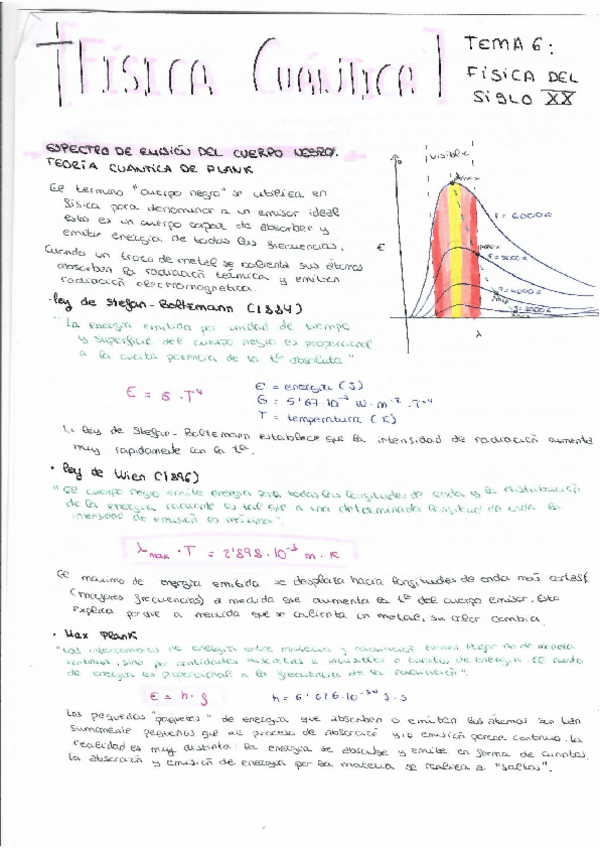 FÍSICA CUÁNTICA
TEMA 6:
FÍSICA DEL
SIGLO XX
ESPECTRO DE EMISIÓN DEL CUERPO NEGRO.
TEORÍA CUÁNTICA DE PLANK
El termino "cuerpo negro" se utiliza en
física para denominar a un emisor ideal
Esto es un cuerpo capaz de absorber y
emitir energía de todas las frecuencias.
Cuando un trozo de metal se calienta sus átomos
absorben la radiación térmica y emiten
radiación electromagnética.
visible
E
λ
T = 6000K
· Ley de Stefan-Boltzmann (1884)
"La energía emitida por unidad de tiempo
y superficie del cuerpo negro es proporcional
a la cuarta potencia de la tª absoluta"
E = G · T⁴
E = energía (J)
G = 5'67·10⁻⁸ W·m⁻²·T⁻⁴
T = temperatura (K)
La ley de Stefan-Boltzmann establece que la intensidad de radiación aumenta
muy rapidamente con la tª.
· Ley de Wien (1896)
"El cuerpo negro emite energía para todas las longitudes de onda y la distribución
de la energía radiante es tal que a una determinada longitud de onda la
intensidad de emisión es máxima".
λmax · T = 2'898·10⁻³ m·K
El máximo de energía emitida se desplaza hacia longitudes de onda más cortas
(mayores frecuencias) a medida que aumenta la tª del cuerpo emisor. Esto
explica porque a medida que se calienta un metal, su color cambia.
· Max Plank
"Los intercambios de energía entre materia y radiación tienen lugar no de manera
continua, sino por cantidades discretas e indivisibles o cuantos de energía. El cuanto
de energía es proporcional a la frecuencia de la radiación".
E = h · f
h = 6'626·10⁻³⁴ J·s
Los pequeños "paquetes" de energía que absorben o emiten los átomos son tan
sumamente pequeños que el proceso de absorción y/o emisión parece continuo. La
realidad es muy distinta: la energía se absorbe y emite en forma de cuantos.
La absorción y emisión de energía por la materia se realiza a "saltos".